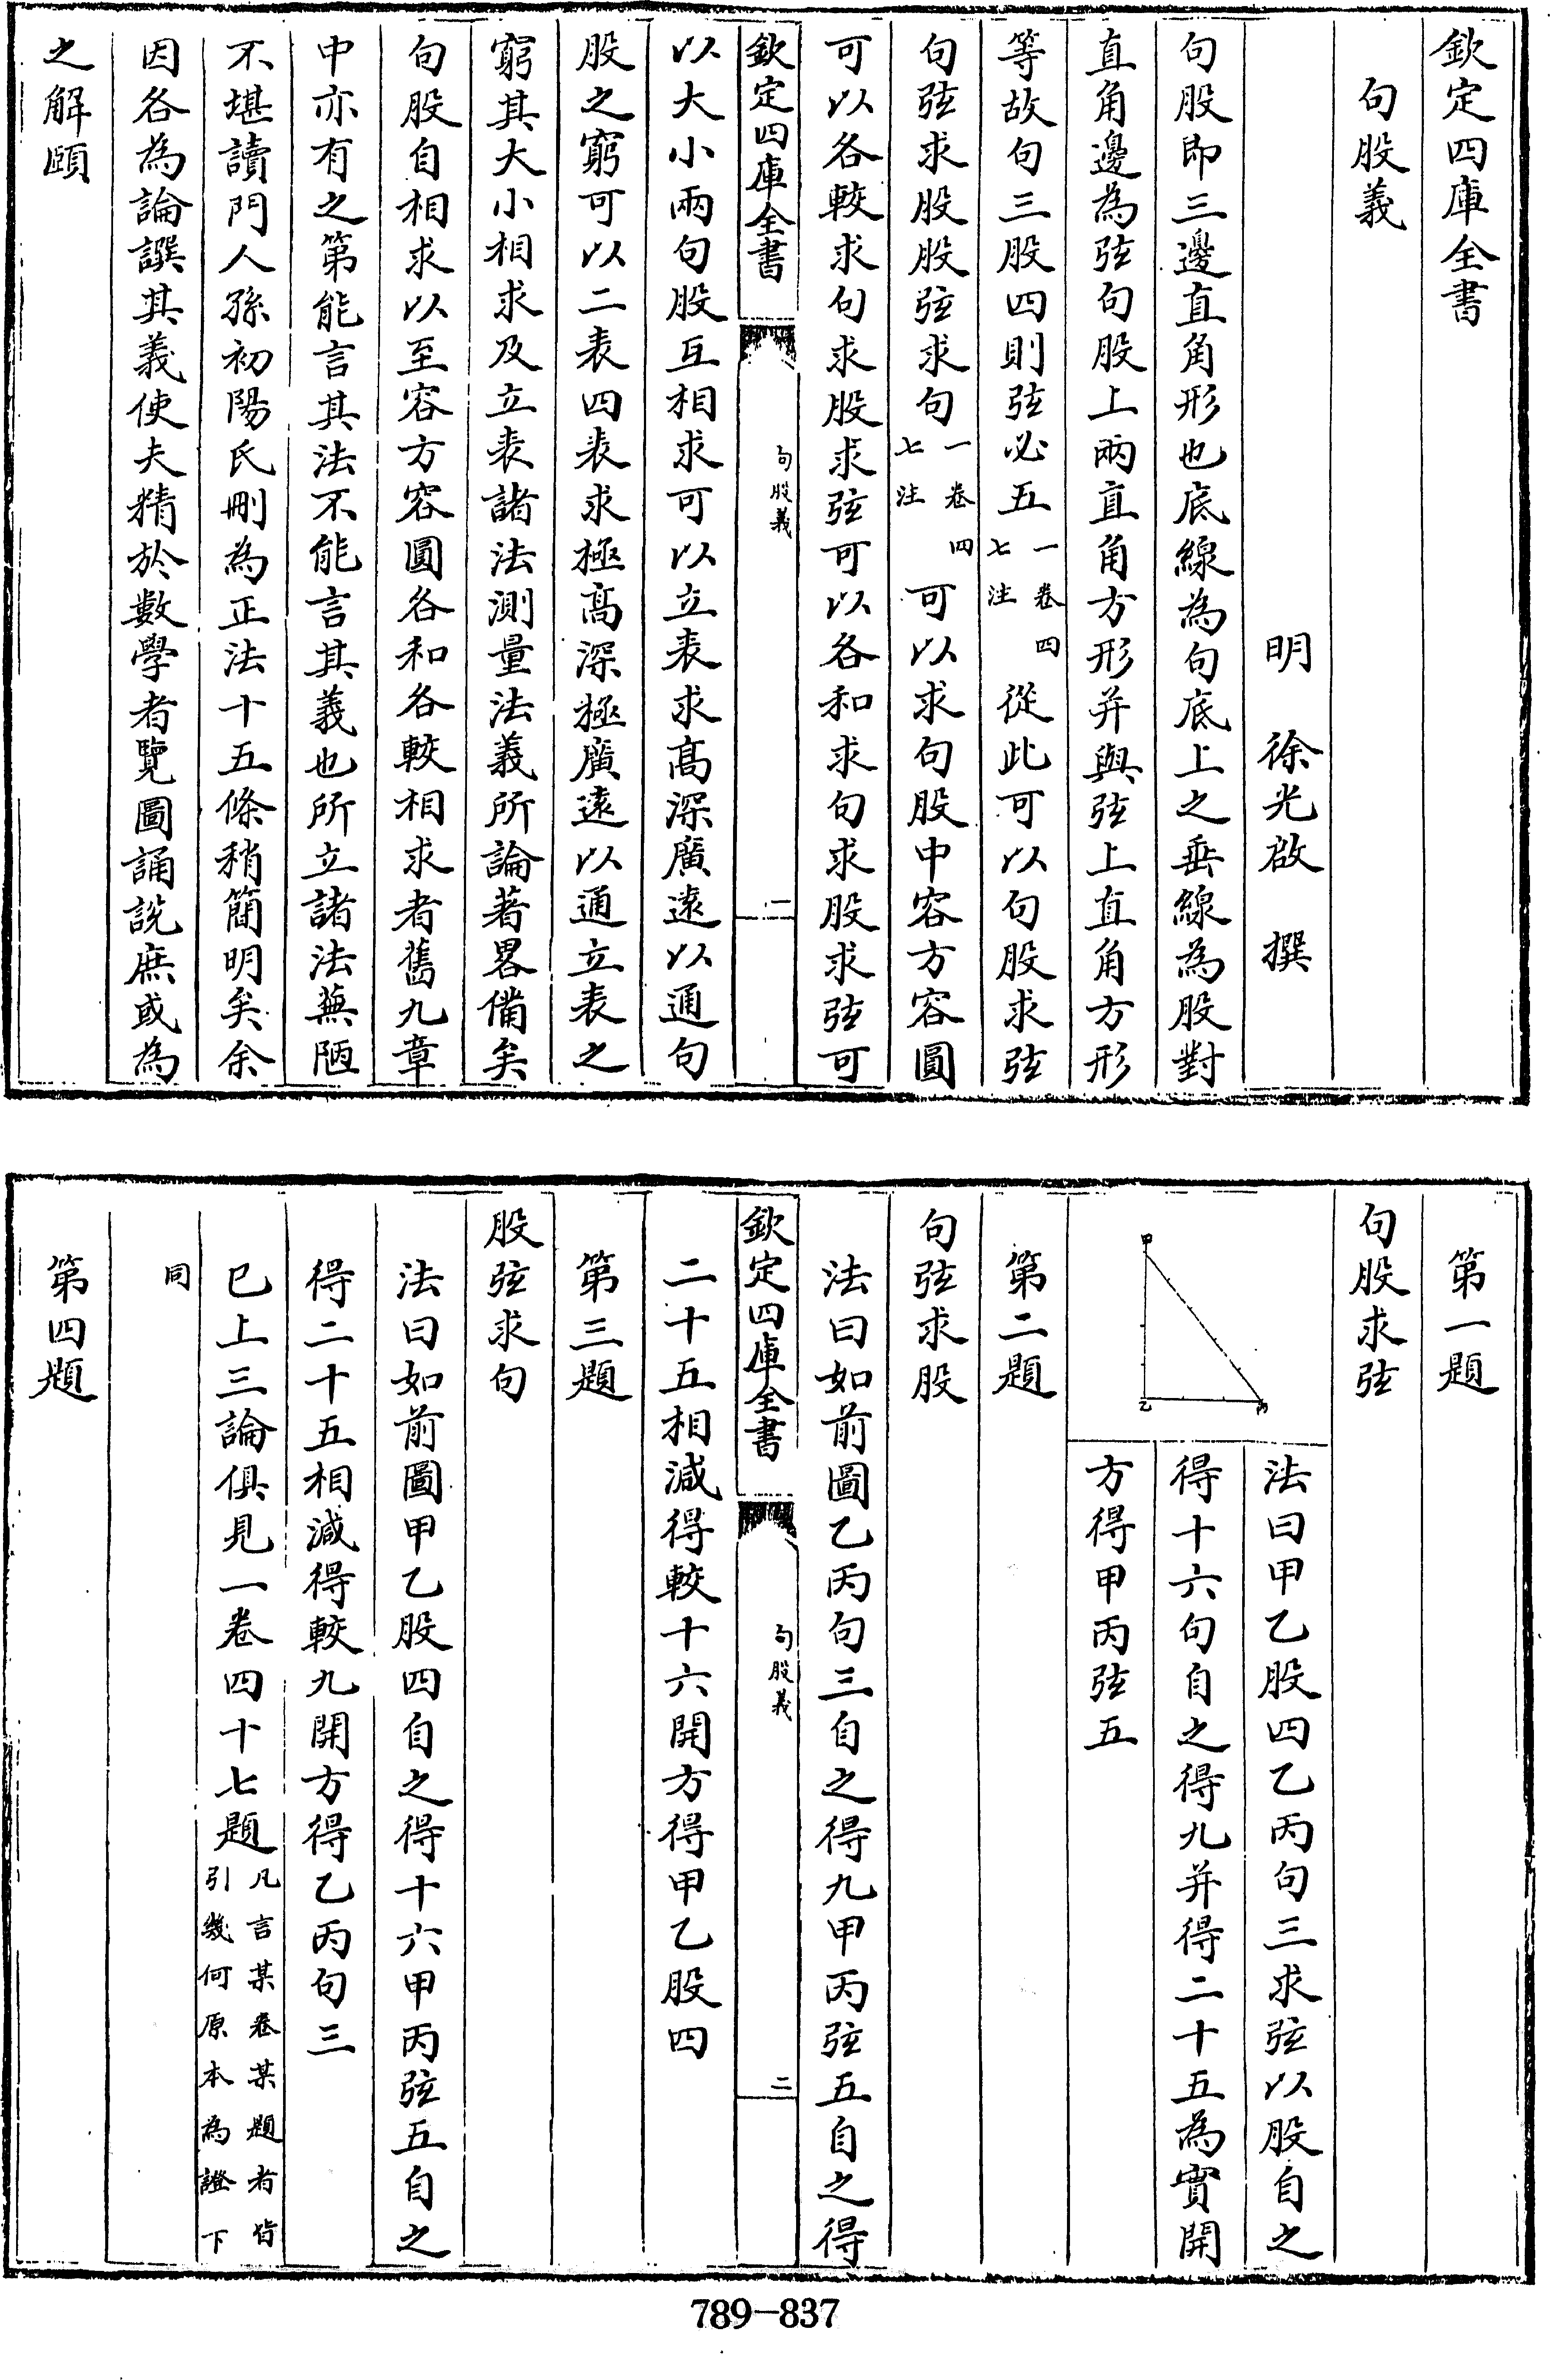 欽定四庫全書
句股義
明 徐光啟 撰
句股即三邊直角形也底線為句底上之垂線為股對
直角邊為弦句股上兩直角方形并與弦上直角方形
等故句三股四則弦必五一卷四七注從此可以句股求弦
句弦求股股弦求句一卷四七注可以求句股中容方容圓
可以各較求句求股求弦可以各和求句求股求弦可
欽定四庫全書 句股義 一
以大小兩句股互相求可以立表求高深廣遠以通句
股之窮可以二表四表求極高深極廣遠以通立表之
窮其大小相求及立表諸法測量法義所論著畧備矣
句股自相求以至容方容圓各和各較相求者舊九章
中亦有之第能言其法不能言其義也所立諸法蕪陋
不堪讀門人孫初陽氏刪為正法十五條稍簡明矣余
因各為論譔其義使夫精於數學者覽圖誦說庶或為
之解頤
第一題
句股求弦
甲
乙
丙
法曰甲乙股四乙丙句三求弦以股自之
得十六句自之得九并得二十五為實開
方得甲丙弦五
第二題
句弦求股
法曰如前圖乙丙句三自之得九甲丙弦五自之得
欽定四庫全書 句股義 二
二十五相減得較十六開方得甲乙股四
第三題
股弦求句
法曰如前圖甲乙股四自之得十六甲丙弦五自之
得二十五相減得較九開方得乙丙句三
已上三論俱見一卷四十七題凡言某卷某題者皆引幾何原本為證下
同
第四題
789-837